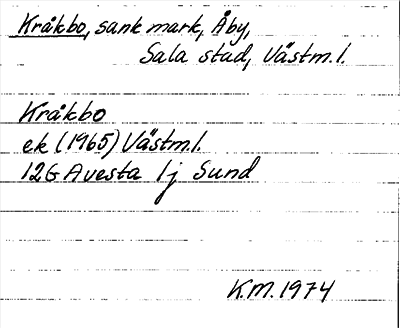 Kråkbo, sank mark, Åby,
Sala stad, Västm.l.
Kråkbo
ek (1965) Västm.l.
12G Avesta 1j Sund
K.M. 1974